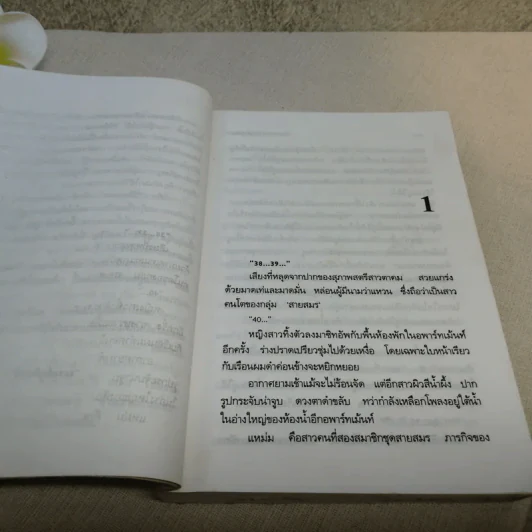 1
"38...39..."
เสียงที่หลุดจากปากของสุภาพสตรีสาวตาคม สวยแกร่ง
ด้วยมาดเท่และมาดมั่น หล่อนผู้มีนามว่าแหวน ซึ่งถือว่าเป็นสาว
คนโตของกลุ่ม 'สายสมร'
"40..."
หญิงสาวทิ้งตัวลงมาซิทอัพกับพื้นห้องพักในอพาร์ทเม้นท์
อีกครั้ง ร่างปราดเปรียวชุ่มไปด้วยเหงื่อ โดยเฉพาะใบหน้าเรียว
กับเรือนผมดำค่อนข้างจะหยิกหยอย
อากาศยามเช้าแม้จะไม่ร้อนจัด แต่อีกสาวผิวสีน้ำผึ้ง ปาก
รูปกระจับน่าจูบ ดวงตาดำขลับ ทว่ากำลังเหลือกโพลงอยู่ใต้น้ำ
ในอ่างใหญ่ของห้องน้ำอีกอพาร์ทเม้นท์
แหม่ม คือสาวคนที่สองสมาชิกชุดสายสมร ภารกิจของ